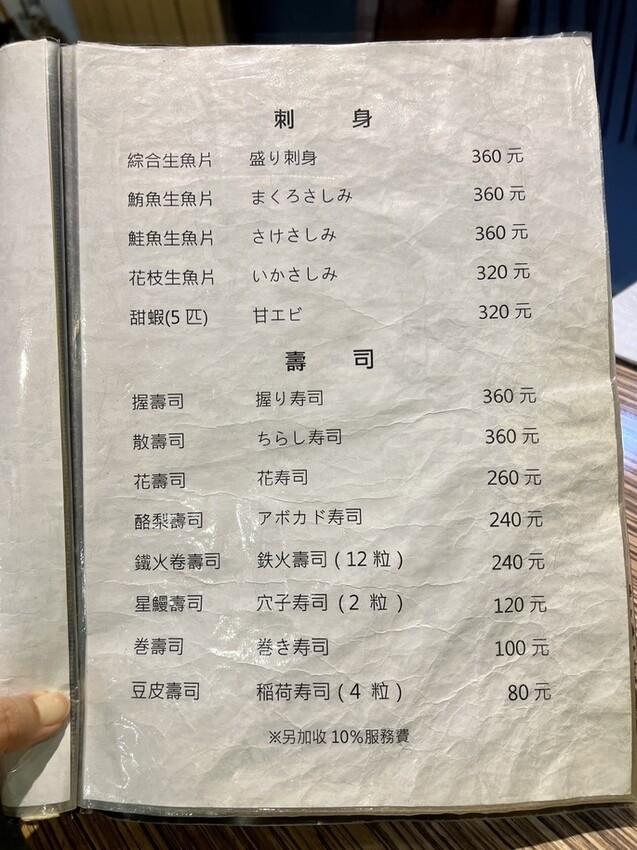 刺 身
綜合生魚片 盛り刺身 360 元
鮪魚生魚片 まくろさしみ 360 元
鮭魚生魚片 さけさしみ 360 元
花枝生魚片 いかさしみ 320 元
甜蝦(5 匹) 甘エビ 320 元
壽 司
握壽司 握り寿司 360 元
散壽司 ちらし寿司 360 元
花壽司 花寿司 260 元
酪梨壽司 アボカド寿司 240 元
鐵火卷壽司 鉄火壽司 ( 12 粒 ) 240 元
星鰻壽司 穴子寿司 ( 2 粒 ) 120 元
巻壽司 巻き寿司 100 元
豆皮壽司 稲荷寿司 ( 4 粒 ) 80 元
※另加收 10%服務費